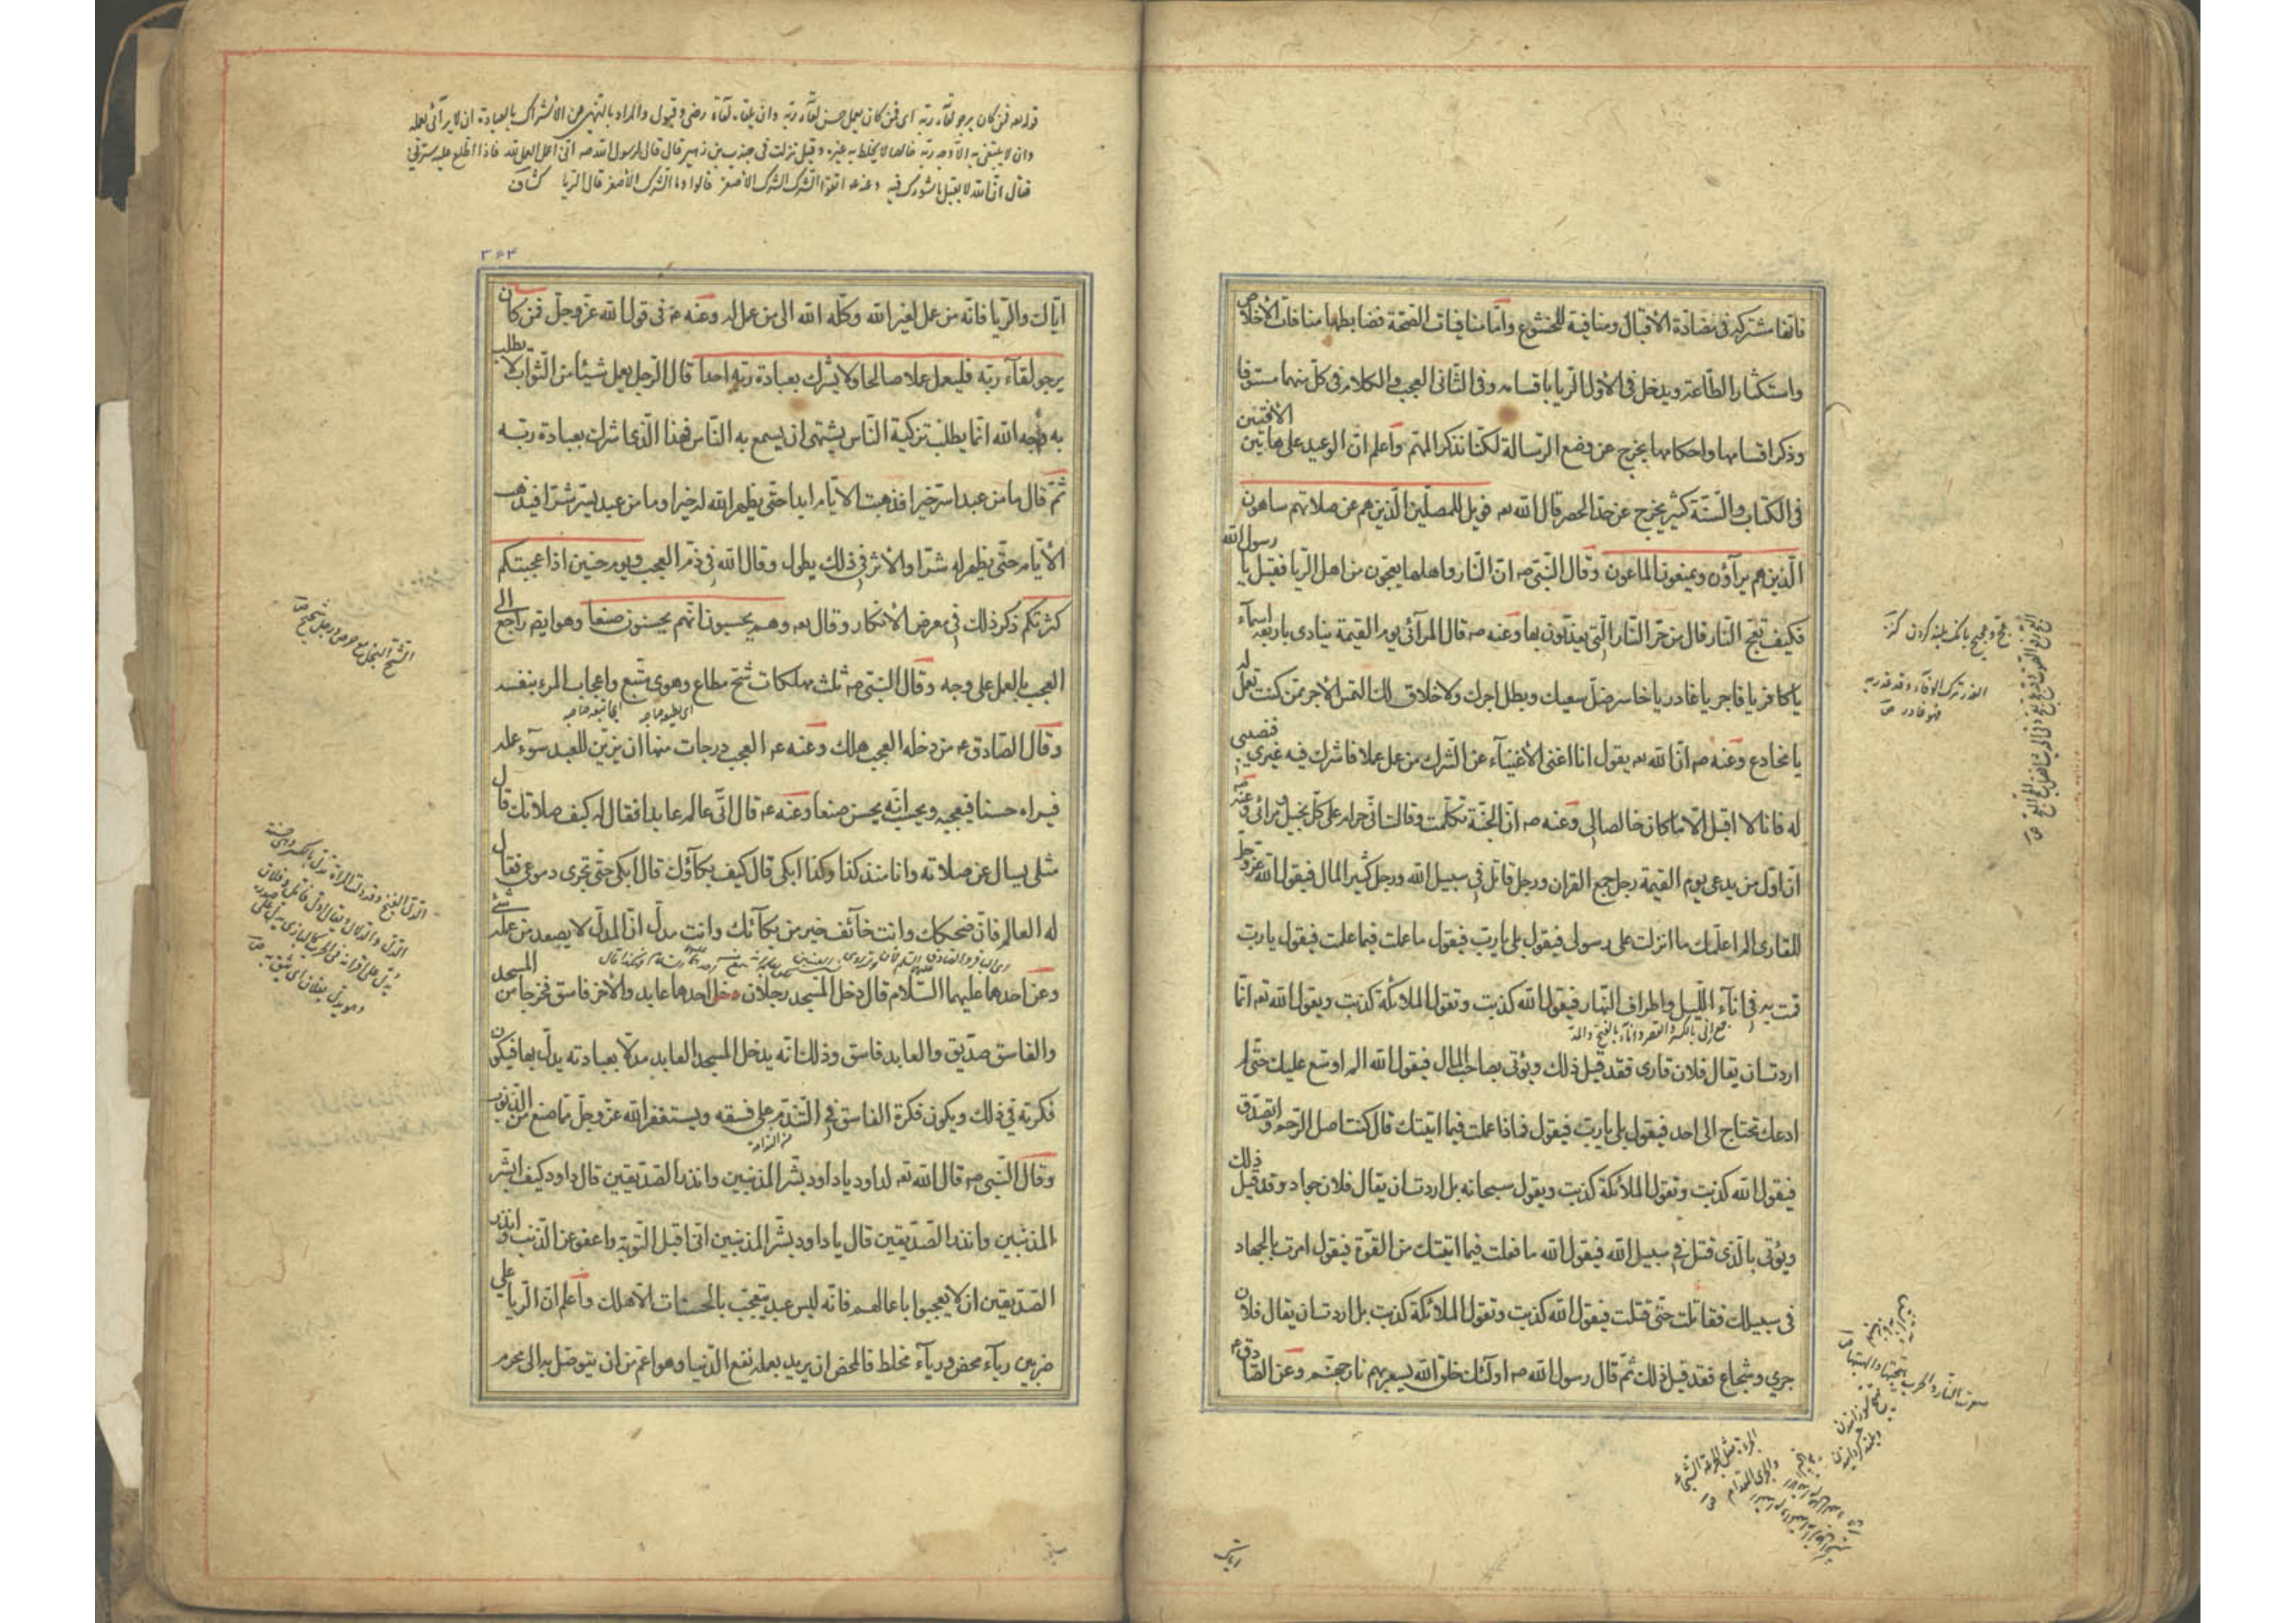 فانها مشتركة فى مضادة الاقبال ومنافية للخشوع وامّا منافيات الصّحة فضابطها منافات الأخلاص
واستكثار الطّاعة ويدخل فى الأوّل الرّيا باقسامه وفى الثّانى العجب والكلام فى كلّ منهما مستوفا
وذكر اقسامها واحكامها يخرج عن وضع الرّسالة لكنّا نذكر المهمّ واعلم انّ الوعيد على هاتين الافتين
فى الكتاب والسّنّة كثير يخرج عن حدّ الحصر قال الله تعه فويل للمصلّين الّذين هم عن صلاتهم ساهون
الّذين هم يرآؤن ويمنعون الماعون وقال النّبى صه انّ النّار واهلها يعجّون من اهل الرّيا فقيل يا رسول الله
فكيف تعجّ النّار قال من حرّ النّار الّتى يعذّبون بها وعنه صه قال المرآئى يوم القيمة ينادى باربعه اسمآء
يا كافر يا فاجر يا غادر يا خاسر ضلّ سعيك وبطل اجرك ولا خلاق لك التمس الأجر ممّن كنت تعمل له
يا مخادع وعنه صه انّ الله تعه يقول انا اغنى الأغنيآء عن الشّرك من عمل عملا فاشرك فيه غيرى فنصيبى
له فانا لا اقبل الّا ما كان خالصا لى وعنه صه انّ الجنّة تكلّمت وقالت انّى حرام على كلّ بخيل ومرائى وعنه صه
انّ اوّل من يدعى يوم القيمة رجل جمع القران ورجل قاتل فى سبيل الله ورجل كثير المال فيقول الله عزّ وجلّ
للقارى الم اعلّمك ما انزلت على رسولى فيقول بلى يا ربّ فيقول ما عملت فيما علمت فيقول يا ربّ
قمت به فى انآء اللّيل واطراف النّهار فيقول الله كذبت وتقول الملائكة كذبت ويقول الله تعه انّما
اردت ان يقال فلان قارى فقد قيل ذلك ويؤتى بصاحب المال فيقول الله الم اوسّع عليك حتّى لم
ادعك تحتاج الى احد فيقول بلى يا ربّ فيقول فماذا عملت فيما اتيتك قال كنت اصل الرّحم واتصدّق
فيقول الله كذبت وتقول الملائكة كذبت ويقول سبحانه بل اردت ان يقال فلان جواد وقد قيل ذلك
ويؤتى بالّذى قتل فى سبيل الله فيقول الله ما فعلت فيما اتيتك من القوّة فيقول امرت بالجهاد
فى سبيلك فقاتلت حتّى قتلت فيقول الله كذبت وتقول الملائكة كذبت بل اردت ان يقال فلان
جرى وشجاع فقد قيل ذلك ثمّ قال رسول الله صه اولئك خلق الله يسعر بهم نار جهنّم وعن الصّادق ع
قوله تعه فمن كان يرجو لقآء ربّه اى فمن كان يعمل حسن لقآء ربّه وان يلقاه لقآء رضى وقبول والمراد بالنّهى عن الأشراك بالعبادة ان لا يرآئى بعمله
وان لا يبتغى به الّا وجه ربّه خالصا لا يخلط به غيره وقيل نزلت فى جندب بن زهير قال قال لرسول الله صه انّى اعمل العمل لله فاذا اطّلع عليه سرّنى
فقال انّ الله لا يقبل ما شورك فيه وعنه ع اتّقوا الشّرك الأصغر قالوا وما الشّرك الأصغر قال الرّيا كشاف
٣٥٣
ايّاك والرّيا فانّه من عمل لغير الله وكله الله الى من عمل له وعنه ع فى قول الله عزّ وجلّ فمن كان
يرجو لقآء ربّه فليعمل عملا صالحا ولا يشرك بعبادة ربّه احدا قال الرّجل يعمل شيئا من الثّواب لا يطلب
به وجه الله انّما يطلب تزكية النّاس يشتهى ان يسمع به النّاس فهذا الّذى اشرك بعبادة ربّه
ثمّ قال ما من عبد اسرّ خيرا فذهبت الأيّام ابدا حتّى يظهر الله له خيرا وما من عبد يسرّ شرّا فيذهب
الأيّام حتّى يظهر له شرّا والأثر فى ذلك يطول وقال الله فى ذمّ العجب ويوم حنين اذ اعجبتكم
كثرتكم ذكر ذلك فى معرض الأنكار وقال تعه وهم يحسبون انّهم يحسنون صنعا وهو ايضا راجع الى
العجب بالعمل على وجه وقال النّبى صه ثلث مهلكات شحّ مطاع وهوى متّبع واعجاب المرء بنفسه
وقال الصّادق ع من دخله العجب هلك وعنه ع العجب درجات منها ان يزيّن للعبد سوء عمله
فيراه حسنا فيعجبه ويحسب انّه يحسن صنعا وعنه ع قال اتى عالم عابدا فقال له كيف صلاتك قال
مثلى يسال عن صلاته وانا منذ كذا وكذا ابكى قال كيف بكآؤك قال ابكى حتّى تجرى دموعى فقال
له العالم فانّ ضحكك وانت خآئف خير من بكآئك وانت مدلّ انّ المدلّ لا يصعد من عمله شئ
وعن احدهما عليهما السّلام قال دخل المسجد رجلان احدهما عابد والأخر فاسق فخرجا من المسجد
والفاسق صدّيق والعابد فاسق وذلك انّه يدخل المسجد العابد مدلّا بعبادته يدلّ بها فيكون
فكرته فى ذلك ويكون فكرة الفاسق فى التّندّم على فسقه ويستغفر الله عزّ وجلّ ممّا صنع من الذّنوب
وقال النّبى صه قال الله تعه لداود يا داود بشّر المذنبين وانذر الصّدّيقين قال داود كيف ابشّر
المذنبين وانذر الصّدّيقين قال يا داود بشّر المذنبين انّى اقبل التّوبة واعفو عن الذّنب وانذر
الصّدّيقين ان لا يعجبوا باعمالهم فانّه ليس عبد يتعجّب بالحسنات الّا هلك واعلم انّ الرّيا على
ضربين ريآء محض وريآء مخلط فالمحض ان يريد بعمله نفع الدّنيا وهو اعمّ من ان يتوصّل به الى محرم